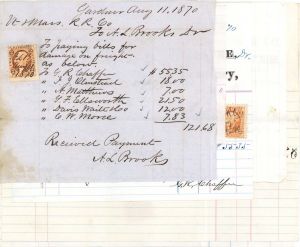 Gardner Aug 11. 1870
Vt & Mass. R. R. Co
To A L Brooks Dr
To paying bills for
damage on freight
as below.
To G R Chaffin $ 55.35
" 18.00
" A. Matthews " 7.00
" Y. F. Ellsworth " 21.50
" Davis " 12.00
" C. W. Morse " 7.83
121.68
Received Payment
A L Brooks
To
E. Dr.
y,
G.R. Chaffin